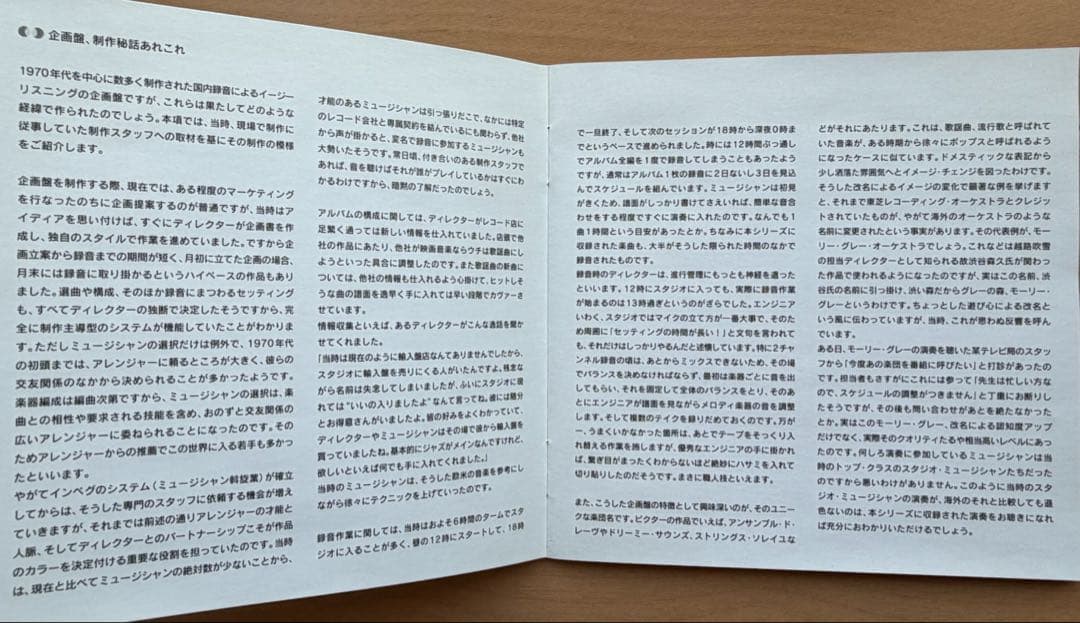 企画盤、制作秘話あれこれ
1970年代を中心に数多く制作された国内録音によるイージー
リスニングの企画盤ですが、これらは果たしてどのような
経緯で作られたのでしょう。本項では、当時、現場で制作に
従事していた制作スタッフへの取材を基にその制作の模様
をご紹介します。
企画盤を制作する際、現在では、ある程度のマーケティング
を行なったのちに企画提案するのが普通ですが、当時はア
イディアを思い付けば、すぐにディレクターが企画書を作
成し、独自のスタイルで作業を進めていました。ですから企
画立案から録音までの期間が短く、月初に立てた企画の場合、
月末には録音に取り掛かるというハイペースの作品もあり
ました。選曲や構成、そのほか録音にまつわるセッティング
も、すべてディレクターの独断で決定したそうですから、完
全に制作主導型のシステムが機能していたことがわかりま
す。ただしミュージシャンの選択だけは例外で、1970年代
の初頭までは、アレンジャーに頼るところが大きく、彼らの
交友関係のなかから決められることが多かったようです。
楽器編成は編曲次第ですから、ミュージシャンの選択は、楽
曲との相性や要求される技能を含め、おのずと交友関係の
広いアレンジャーに委ねられることになったのです。その
ためアレンジャーからの推薦でこの世界に入る若手も多かっ
たといいます。
やがてインペグのシステム(ミュージシャン斡旋業)が確立
してからは、そうした専門のスタッフに依頼する機会が増え
ていきますが、それまでは前述の通りアレンジャーの才能と
人脈、そしてディレクターとのパートナーシップこそが作品
のカラーを決定付ける重要な役割を担っていたのです。当時
は、現在と比べてミュージシャンの絶対数が少ないことから、
才能のあるミュージシャンは引っ張りだこで、なかには特定
のレコード会社と専属契約を結んでいるにも関わらず、他社
から声が掛かると、変名で録音に参加するミュージシャンも
大勢いたそうです。常日頃、付き合いのある制作スタッフで
あれば、音を聴けばそれが誰がプレイしているかはすぐに
わかるわけですから、暗黙の了解だったのでしょう。
アルバムの構成に関しては、ディレクターがレコード店に
足繁く通っては新しい情報を仕入れていました。店頭で他
社の作品にあたり、他社が映画音楽ならウチは歌謡曲にし
ようといった具合に調整したのです。また歌謡曲の新曲に
ついては、他社の情報も仕入れるよう心掛けて、ヒットしそ
うな曲の譜面を逸早く手に入れては早い段階でカヴァーさ
せています。
情報収集といえば、あるディレクターがこんな話を聞かせ
てくれました。
「当時は現在のように輸入盤店なんてありませんでしたから、
スタジオに輸入盤を売りにくる人がいたんですよ。残念な
がら名前は失念してしまいましたが、ふいにスタジオに現
れては"いいの入りましたよ"なんて言ってね。彼には随分
とお得意さんがいましたよ。彼の好みをよくわかっていて、
ディレクターやミュージシャンはその場で彼から輸入盤を
買っていましたね。基本的にジャズがメインなんですけれど、
欲しいといえば何でも手に入れてくれました。」
当時のミュージシャンは、そうした欧米の音楽を参考にし
ながら徐々にテクニックを上げていったのです。
録音作業に関しては、当時はおよそ6時間のタームでスタ
ジオに入ることが多く、昼の12時にスタートして、18時
で一旦終了、そして次のセッションが18時から深夜0時ま
でというペースで進められました。時には12時間ぶっ通し
でアルバム全編を1度で録音してしまうこともあったよう
ですが、通常はアルバム1枚の録音に2日ないし3日を見込
んでスケジュールを組んでいます。ミュージシャンは初見
がきくため、譜面がしっかり書けてさえいれば、簡単な音合
わせをする程度ですぐに演奏に入れたのです。なんでも1
曲1時間という目安があったとか。ちなみに本シリーズに
収録された楽曲も、大半がそうした限られた時間のなかで
録音されたものです。
録音時のディレクターは、進行管理にもっとも神経を遣った
といいます。12時にスタジオに入っても、実際に録音作業
が始まるのは13時過ぎというのがざらでした。エンジニア
いわく、スタジオではマイクの立て方が一番大事で、そのた
め周囲に「セッティングの時間が長い!」と文句を言われて
も、それだけはしっかりやるんだと述懐しています。特に2チャ
ンネル録音の頃は、あとからミックスできないため、その場
でバランスを決めなければならず、最初は楽器ごとに音を出
してもらい、それを固定して全体のバランスをとり、そのあ
とにエンジニアが譜面を見ながらメロディ楽器の音を調整
します。そして複数のテイクを録りだめておくのです。万が
一、うまくいかなかった箇所は、あとでテープをそっくり入
れ替える作業を施しますが、優秀なエンジニアの手に掛かれ
ば、繋ぎ目がまったくわからないほど絶妙にハサミを入れて
切り貼りしたのだそうです。まさに職人技といえます。
また、こうした企画盤の特徴として興味深いのが、そのユニー
クな楽団名です。ビクターの作品でいえば、アンサンブル・ド・
レーヴやドリーミー・サウンズ、ストリングス・ソレイユな
どがそれにあたります。これは、歌謡曲、流行歌と呼ばれて
いた音楽が、ある時期から徐々にポップスと呼ばれるよう
になったケースに似ています。ドメスティックな表記から
少し洒落た雰囲気へとイメージ・チェンジを図ったわけです。
そうした改名によるイメージの変化で顕著な例を挙げます
と、それまで東芝レコーディング・オーケストラとクレジッ
トされていたものが、やがて海外のオーケストラのような
名前に変更されたという事実があります。その代表例が、モー
リー・グレー・オーケストラでしょう。これなどは越路吹雪
の担当ディレクターとして知られる故渋谷森久氏が関わっ
た作品で使われるようになったのですが、実はこの名前、渋
谷氏の名前に引っ掛け、渋い森だからグレーの森、モーリー・
グレーというわけです。ちょっとした遊び心による改名と
いう風に伝わっていますが、当時、これが思わぬ反響を呼ん
でいます。
ある日、モーリー・グレーの演奏を聴いた某テレビ局のスタッ
フから「今度あの楽団を番組に呼びたい」と打診があったの
です。担当者もさすがにこれには参って「先生は忙しい方な
ので、スケジュールの調整がつきません」と丁重にお断りし
たそうですが、その後も問い合わせがあとを絶たなかった
とか。実はこのモーリー・グレー、改名による認知度アップ
だけでなく、実際そのクオリティたるや相当高いレベルにあっ
たのです。何しろ演奏に参加しているミュージシャンは当
時のトップ・クラスのスタジオ・ミュージシャンたちだった
のですから悪いわけがありません。このように当時のスタ
ジオ・ミュージシャンの演奏が、海外のそれと比較しても遜
色ないのは、本シリーズに収録された演奏をお聴きになれ
ば充分におわかりいただけるでしょう。